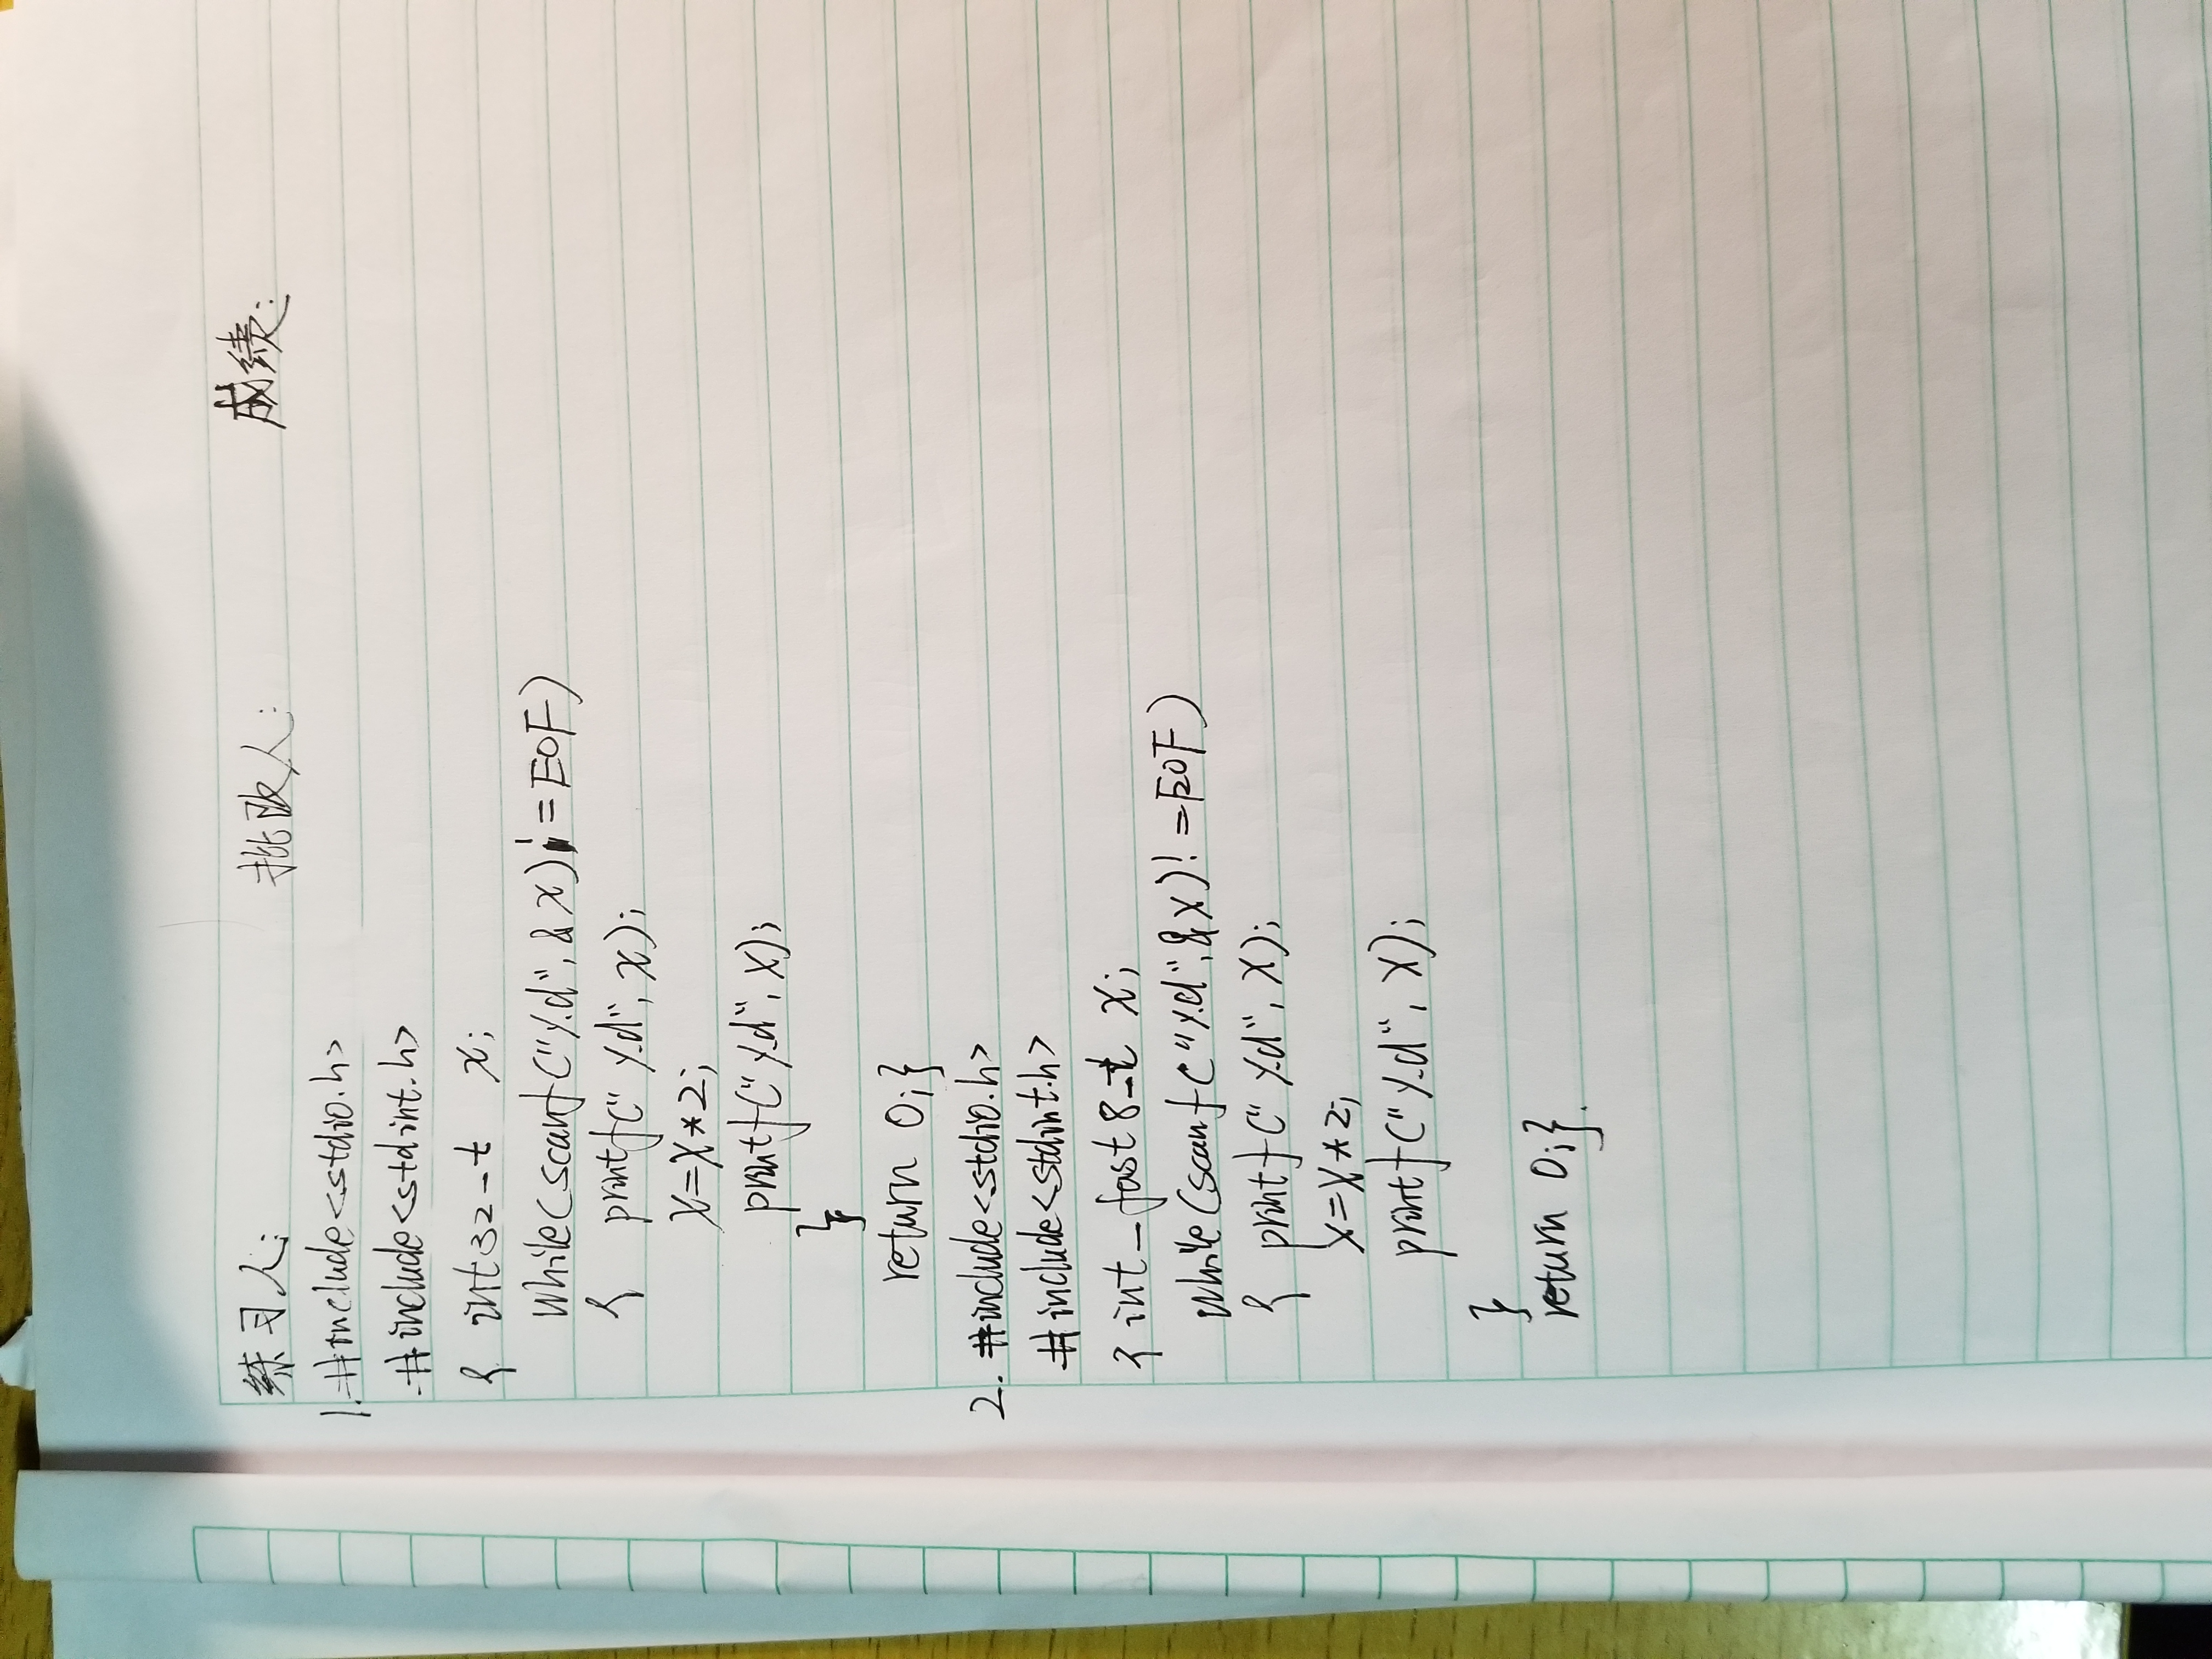 练习人: 批改人: 成绩:
1. #include<stdio.h>
#include<stdint.h>
{ int32_t x;
while(scanf("%d",&x)!=EOF)
{ printf("%d",x);
x=x*2;
printf("%d",x);
}
return 0;}
2. #include<stdio.h>
#include<stdint.h>
{ int_fast8_t x;
while(scanf("%d",&x)!=EOF)
{ printf("%d",x);
x=x*2;
printf("%d",x);
}
return 0;}.